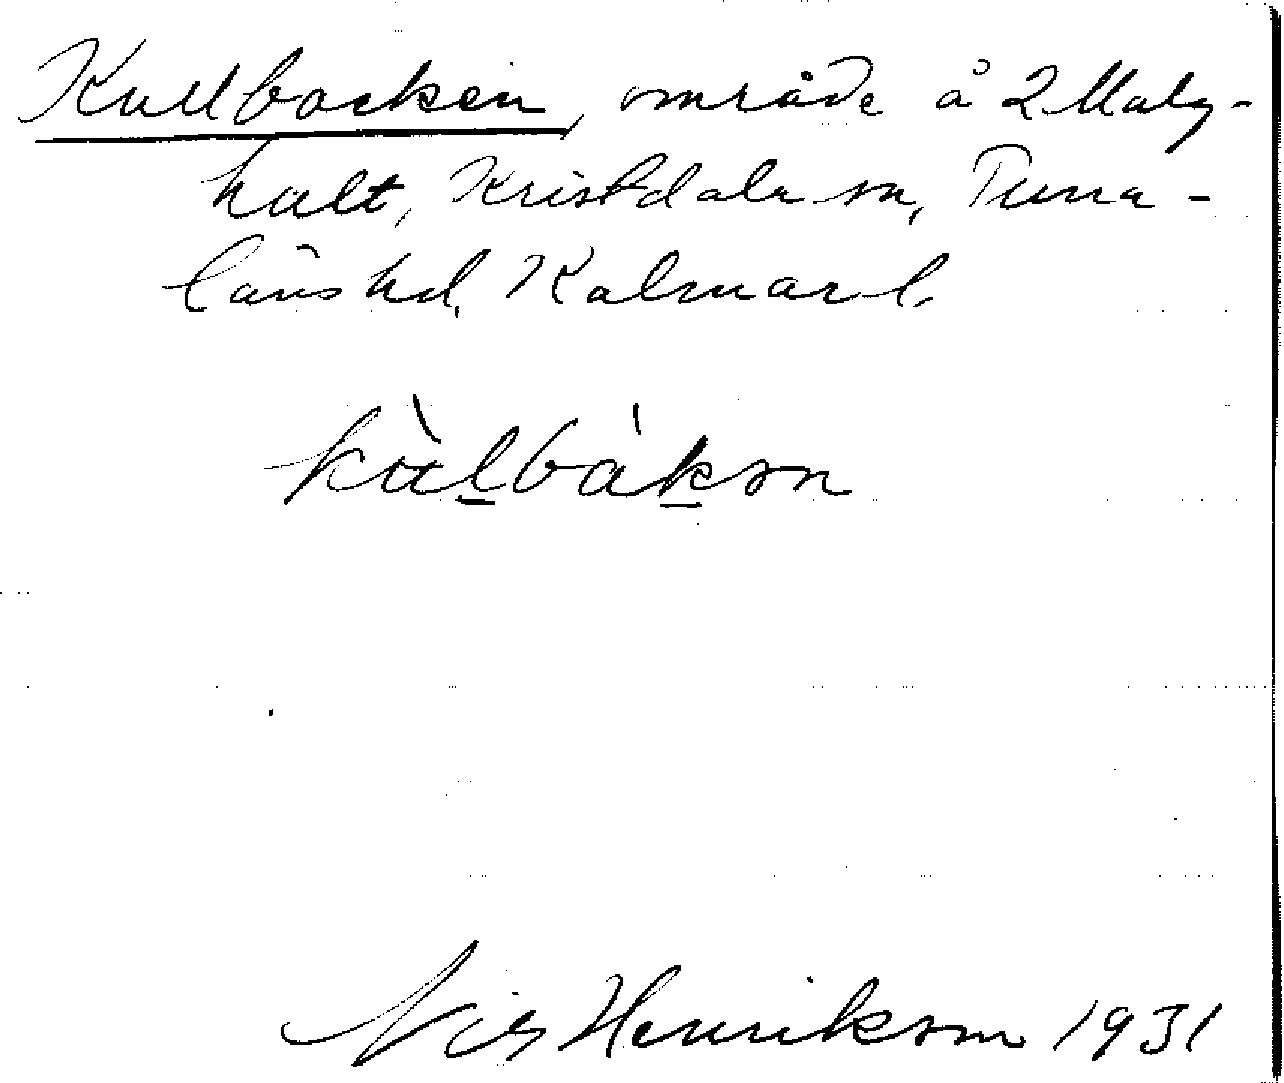 Kullbacken, område å 2 Malg-
hult, Kristdala sn, Tuna-
läns hd, Kalmar l.
kùlbákən
Nils Henriksson 1931